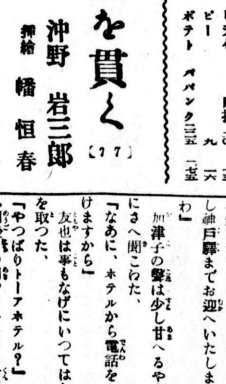 ピー 九一 一六
ポテト バンク三五 七五
を貫く
【77】
沖野岩三郎
挿繪 幡恒春
し神戸驛までお迎へいたしま
わ』
加津子の聲は少し甘へるや
にさへ聞こねた、
『なあに、ホテルから電話を
けますから』
友也は事もなげにいつては
を取つた、
『やつぱりトーアホテル?』